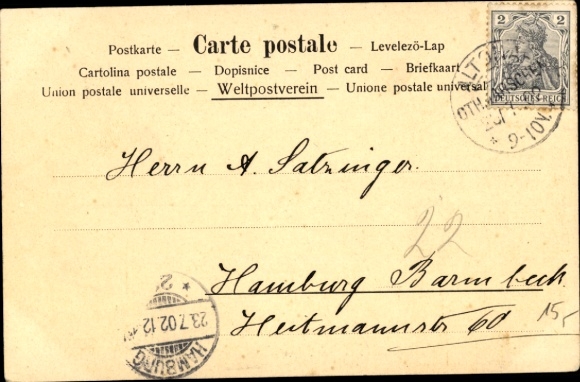 Postkarte — Carte postale — Levelezö-Lap
Cartolina postale — Dopisnice — Post card — Briefkaart
Union postale universelle — Weltpostverein — Unione postale universal
2 2
DEUTSCHES REICH
9-10V.
Herrn A. Satzinger.
22
Hamburg Barmbeck
Heitmannstr 60
15,-
23.7.02.12
HAMBURG